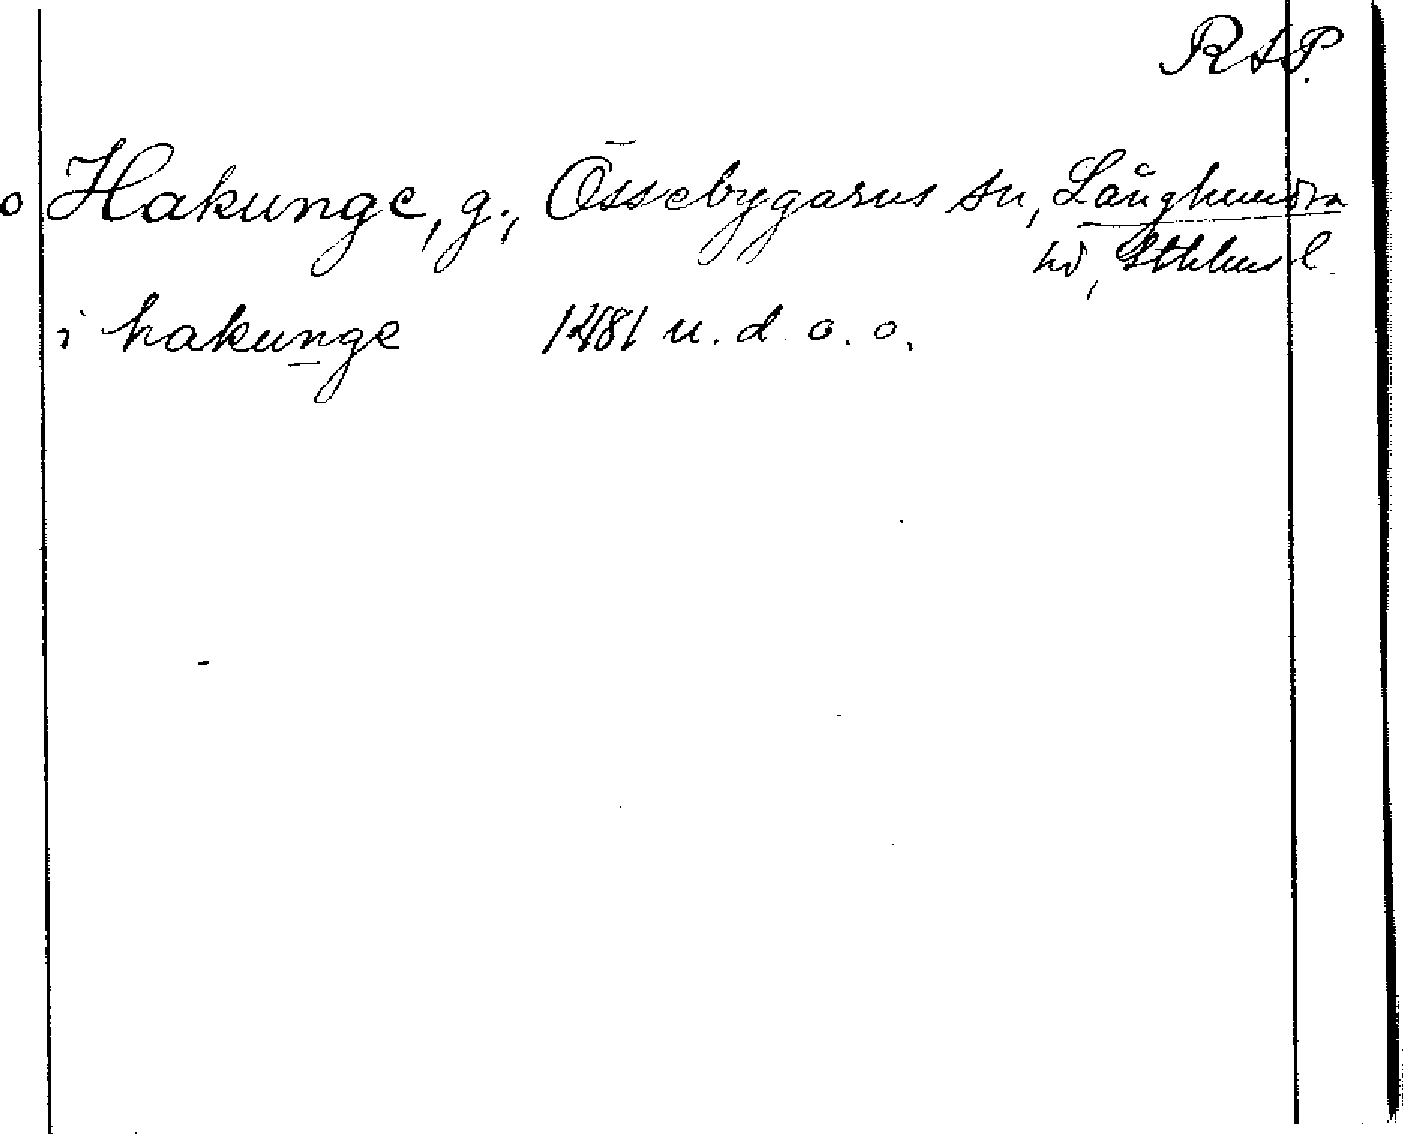 RAP.
o Hakunge, g., Össebygarns sn, Långhundra
hd, Sthlms l.
i hakunge 1481 u. d. o. o.